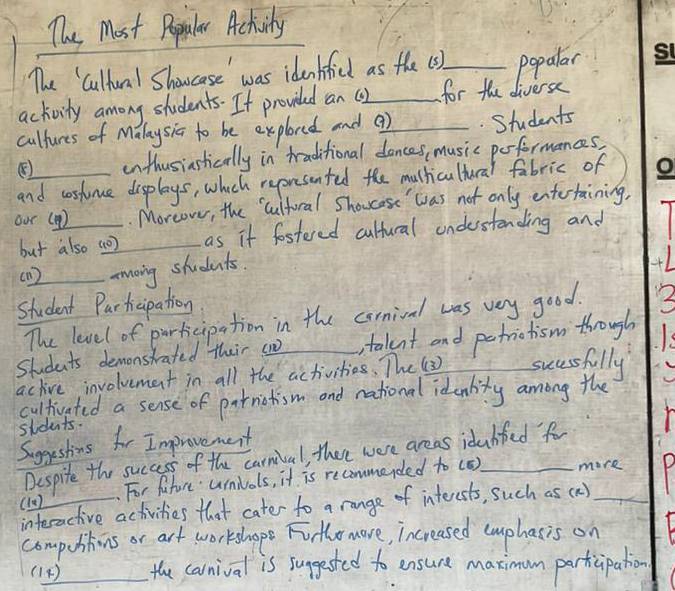 The Most Popular Activity
The 'Cultural Showcase' was identified as the (5)______ popular
activity among students. It provided an (6)______ for the diverse
cultures of Malaysia to be explored and (7)______. Students
(8)______ enthusiastically in traditional dances, music performances,
and costume displays, which represented the multicultural fabric of
our (9)______. Moreover, the 'Cultural Showcase' was not only entertaining,
but also (10)______ as it fostered cultural understanding and
(11)______ among students.
Student Participation
The level of participation in the carnival was very good.
Students demonstrated their (12)______, talent and patriotism through
active involvement in all the activities. The (13)______ sucessfully
cultivated a sense of patriotism and national identity among the
students.
Suggestins for Improvement
Despite the success of the carnival, there were areas identified for
(14)______. For future carnivals, it is recommended to (15)______ more
interactive activities that cater to a range of interests, such as (16)______
competitions or art workshops Furthermore, increased emphasis on
(17)______ the carnival is suggested to ensure maximum participation.